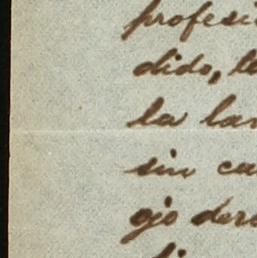 profesi
dido, te
la lar
sin ca
ojo dere